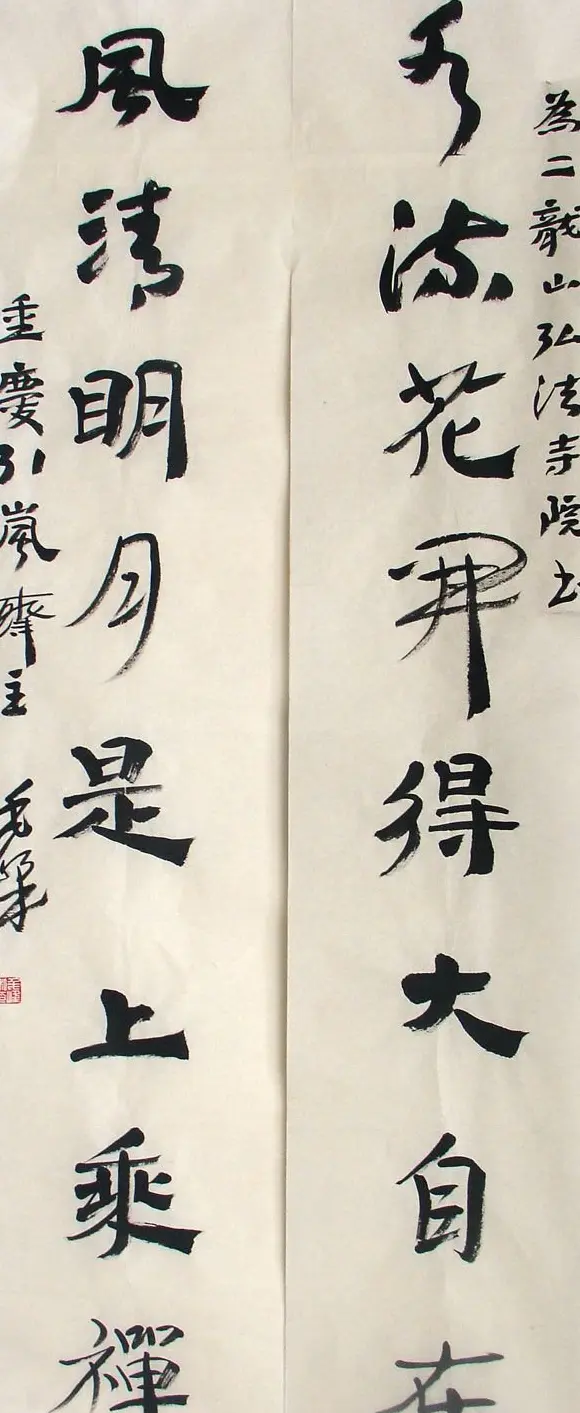 為二龍山弘法寺院书
水流花開得大自在
風清明月是上乘禪
重慶引嵐齋主